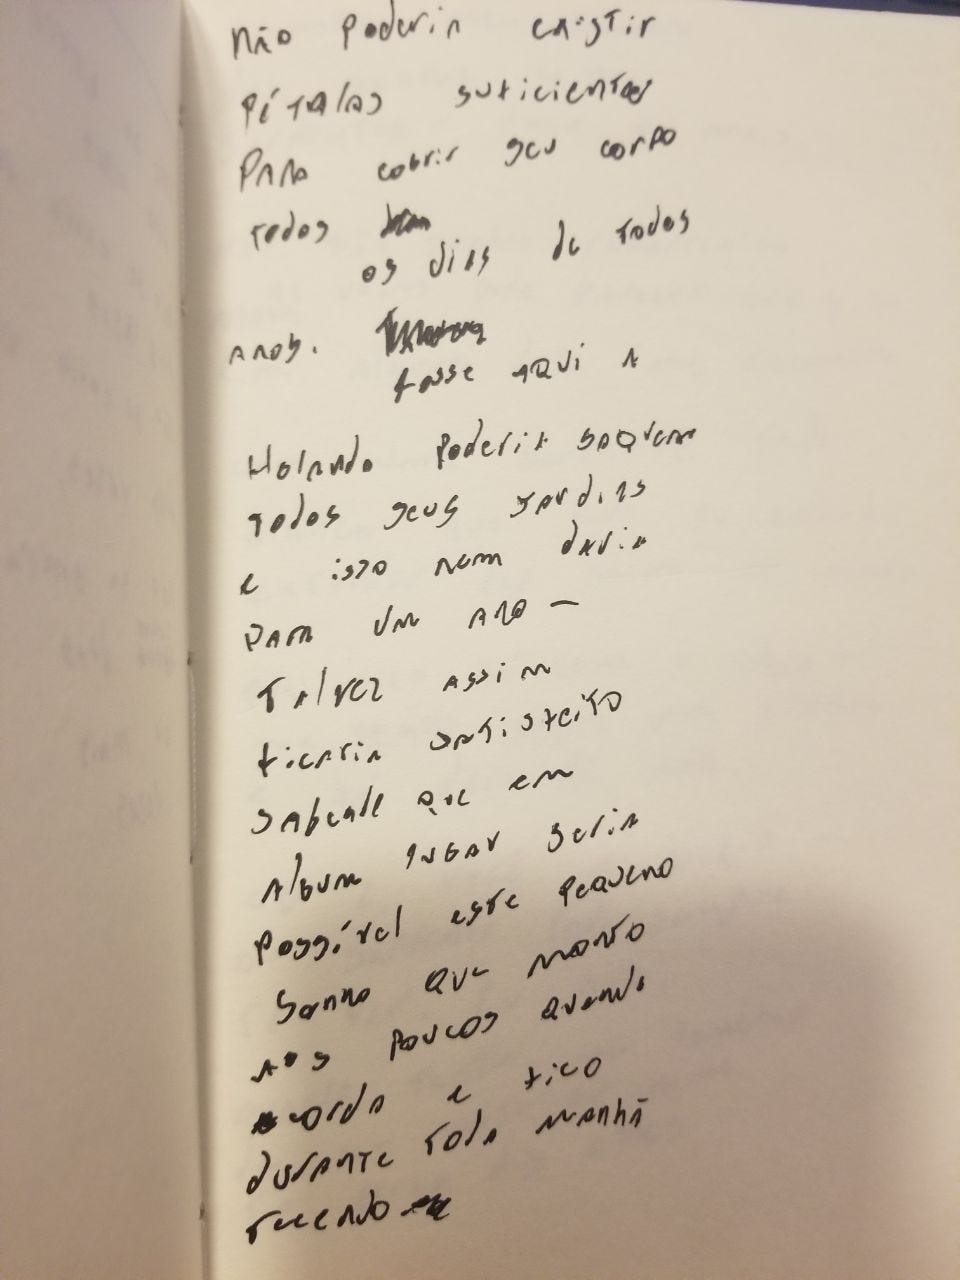 Não poderia existir
pétalas suficientes
Para cobrir seu corpo
todos
os dias de todos
anos.
fosse aqui a
Holanda poderia saquear
todos seus jardins
e isso nem daria
para um ano —
Talvez assim
ficaria satisfeito
que em
Algum lugar seria
possível este pequeno
sonho que monto
aos poucos quando
acordo e fico
durante toda manhã
tecendo